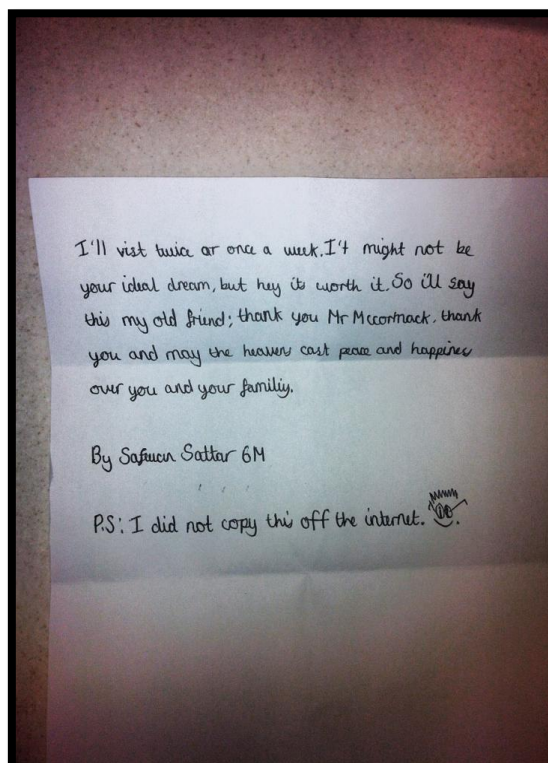 I'll vist twice or once a week. I't might not be
your ideal dream, but hey its worth it. So i'll say
this my old friend; thank you Mr Mccormack, thank
you and may the heavens cast peace and happines
over you and your familiy.
By Sattar 6M
P.S: I did not copy this off the internet.